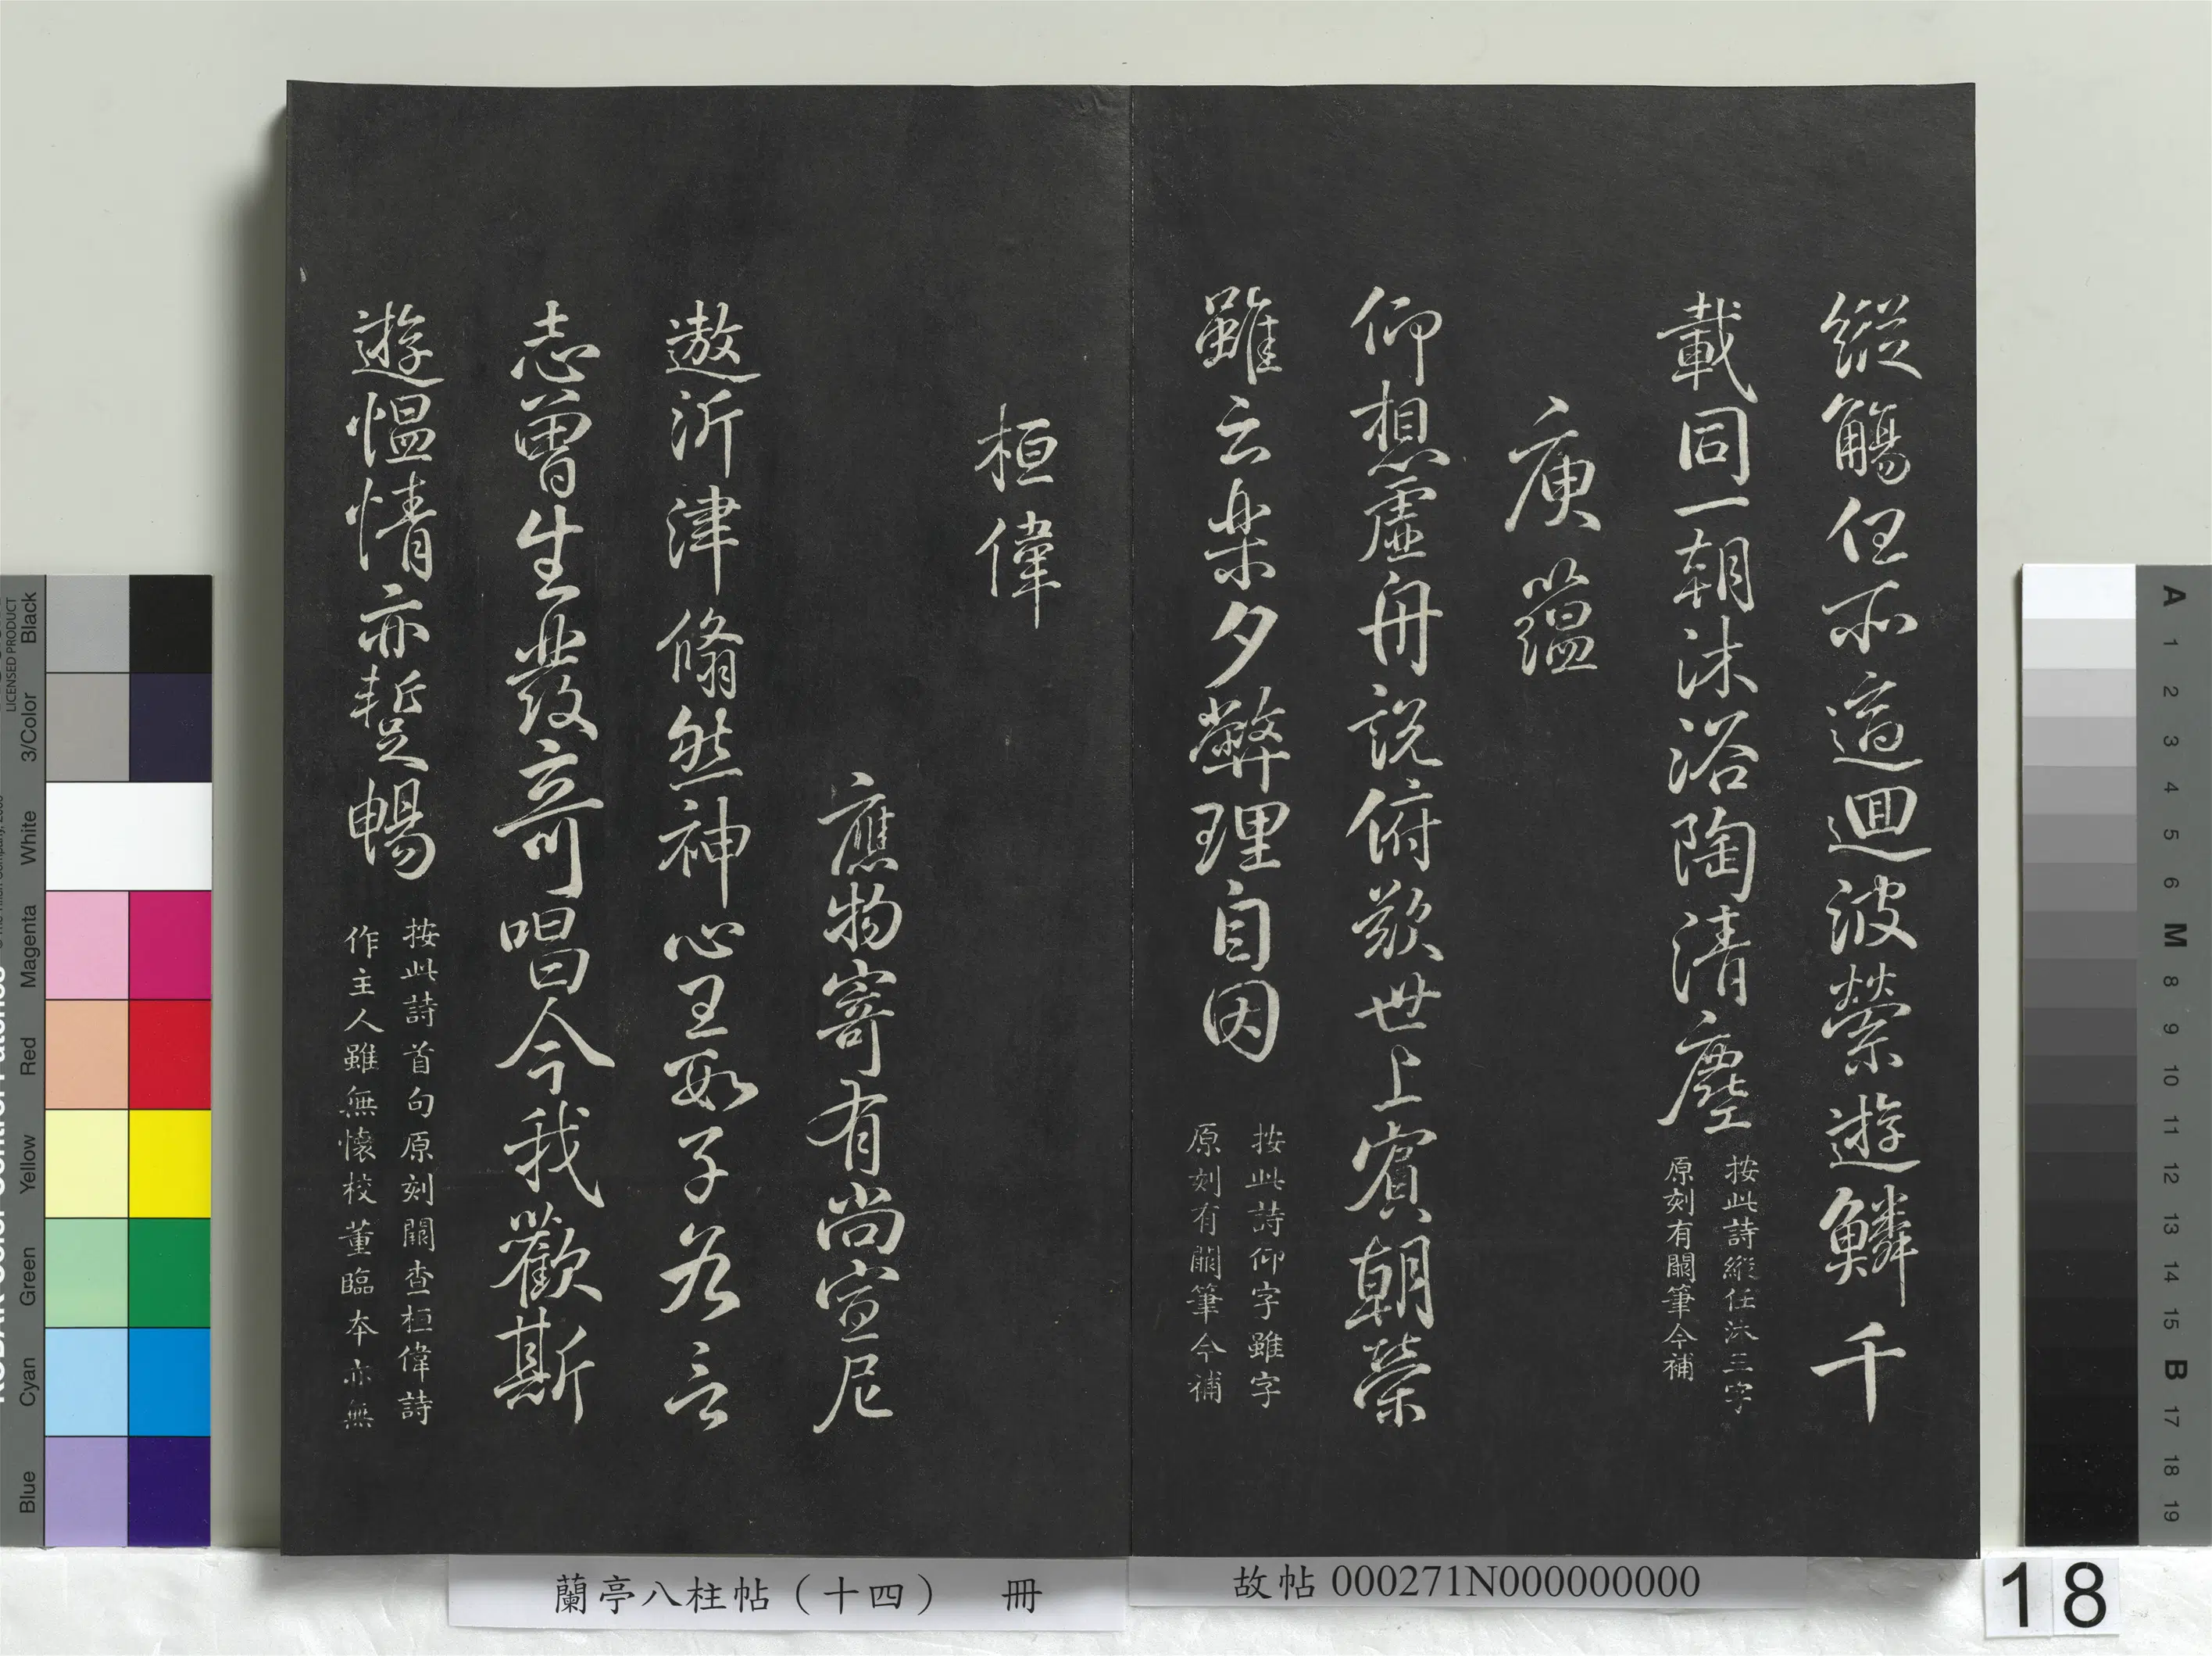 縱觴任所適迴波縈遊鱗千
載同一朝沐浴陶清塵
按此詩縱任沐三字
原刻有闕筆今補
庾蘊
仰想虛舟說俯歎世上賓朝榮
雖云樂夕弊理自因
按此詩仰字雖字
原刻有闕筆今補
桓偉
應物寄有尚宣尼
遨沂津翛然神心王數子各言
志曾生發奇唱今我歡斯
遊慍情亦蹔暢
按此詩首句原刻闕查桓偉詩
作主人雖無懷校董臨本亦無
蘭亭八柱帖（十四） 冊
故帖 000271N000000000
18
Blue Cyan Green Yellow Red Magenta White 3/Color Black
LICENSED PRODUCT
A 1 2 3 4 5 6 M 8 9 10 11 12 13 14 15 B 17 18 19